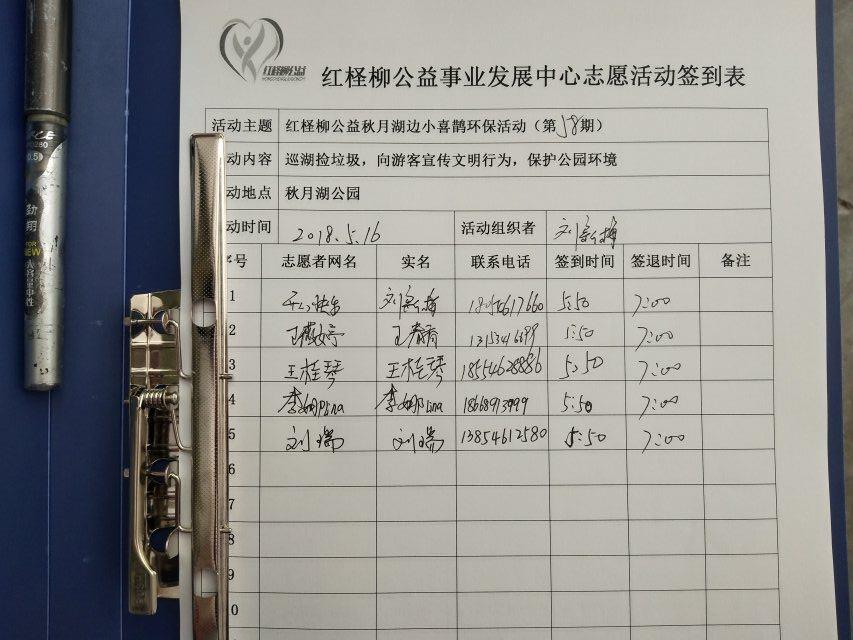 红柽柳公益
HONGCHENGLIUGONGYI
红柽柳公益事业发展中心志愿活动签到表
活动主题 红柽柳公益秋月湖边小喜鹊环保活动（第58期）
动内容 巡湖捡垃圾，向游客宣传文明行为，保护公园环境
动地点 秋月湖公园
动时间 2018.5.16 活动组织者 刘
号 志愿者网名 实名 联系电话 签到时间 签退时间 备注
1 刘 5:50 7:00
2 王 王 5:50 7:00
3 王桂琴 王桂琴 18554628886 5:50 7:00
4 李娜lina 李娜lina 5:50 7:00
5 刘瑞 刘瑞 13854612580 5:50 7:00
6
7
8
9
0
0.5
劲
翔
FOR
NEW
大容量中性